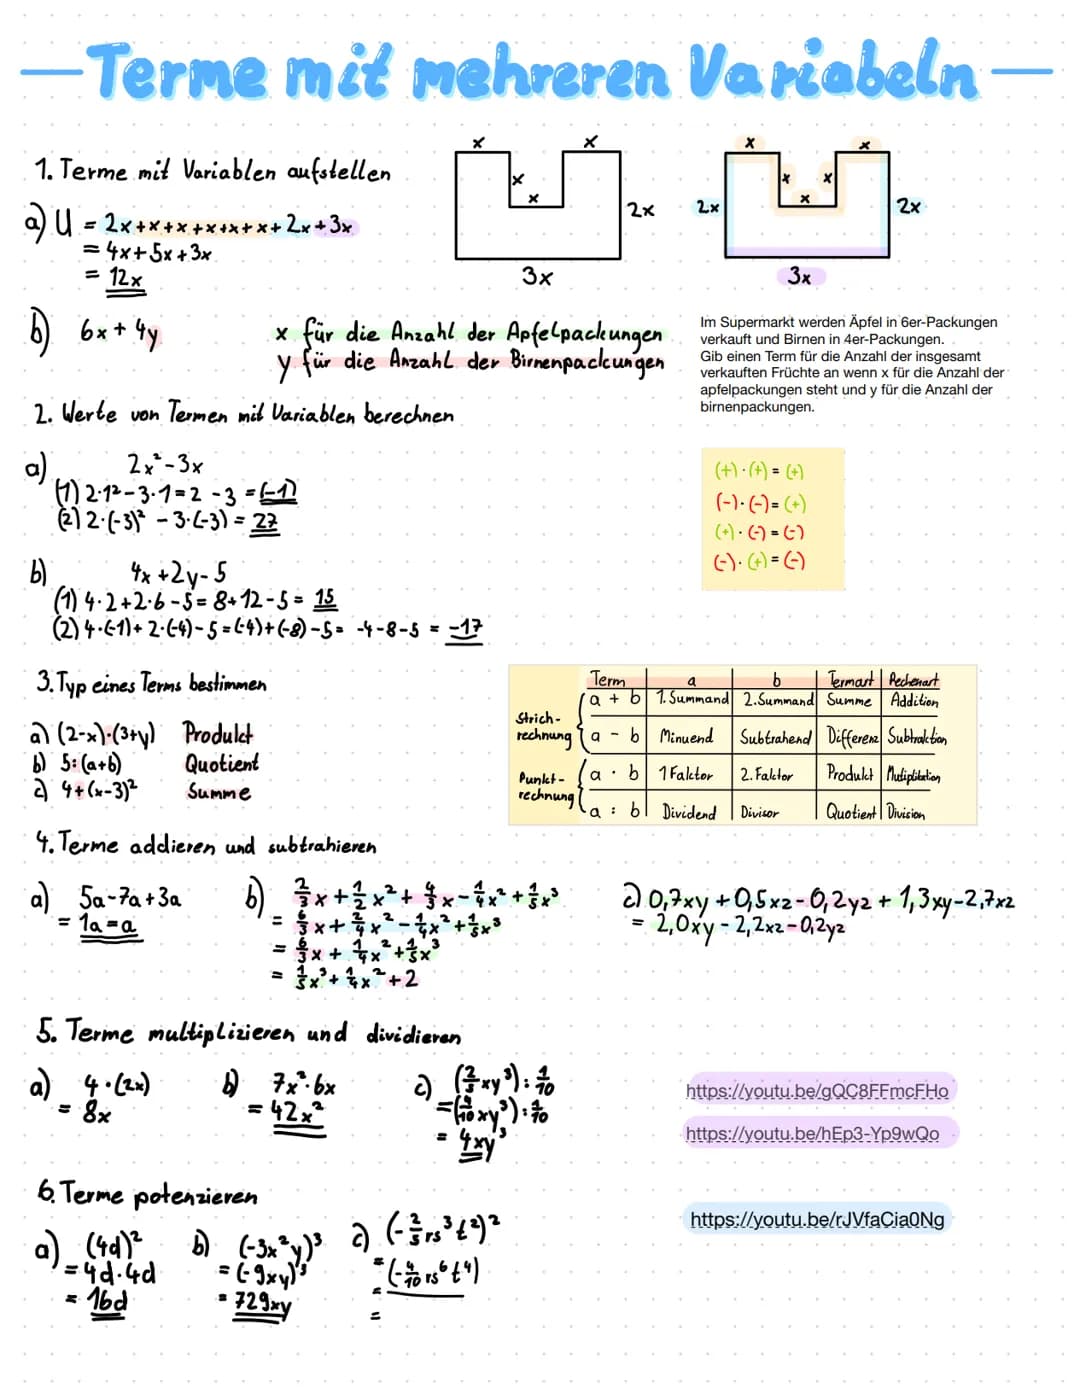 Terme mit mehreren Variabeln
1. Terme mit Variablen aufstellen
a) U = 2x+x+x+x+x+x+2x+3x
= 4x+5x+3x
= 12x
x x
x
x
2x
3x
x x
x x
x
2x 2x
3x
b) 6x + 4y
x für die Anzahl der Apfelpackungen
y für die Anzahl der Birnenpackungen
Im Supermarkt werden Äpfel in 6er-Packungen
verkauft und Birnen in 4er-Packungen.
Gib einen Term für die Anzahl der insgesamt
verkauften Früchte an wenn x für die Anzahl der
apfelpackungen steht und y für die Anzahl der
birnenpackungen.
2. Werte von Termen mit Variablen berechnen
a) 2x²-3x
(1) 2·1²-3·1=2-3=(-1)
(2) 2·(-3)² - 3·(-3) = 27
(+)·(+)=(+)
(-)·(-)=(+)
(+)·(-)=(-)
(-)·(+)=(-)
b) 4x+2y-5
(1) 4·2+2·6-5=8+12-5= 15
(2) 4·(-1)+2·(-4)-5=(-4)+(-8)-5= -4-8-5 = -17
3. Typ eines Terms bestimmen
a) (2-x)·(3+y) Produkt
b) 5:(a+b) Quotient
c) 4+(x-3)² Summe
Term a b Termart Rechenart
Strich-rechnung
a + b 1. Summand 2. Summand Summe Addition
a - b Minuend Subtrahend Differenz Subtraktion
Punkt-rechnung
a · b 1 Faktor 2. Faktor Produkt Multiplikation
a : b Dividend Divisor Quotient Division
4. Terme addieren und subtrahieren
a) 5a-7a+3a
= 1a=a
b) 2/3x+1/2x²+4/3x-1/4x²+1/5x³
= 6/3x+2/4x²-1/4x²+1/5x³
= 6/3x+1/4x²+1/5x³
= 1/5x³+1/4x²+2
c) 0,7xy+0,5xz-0,2yz+1,3xy-2,7xz
= 2,0xy-2,2xz-0,2yz
5. Terme multiplizieren und dividieren
a) 4·(2x)
= 8x
b) 7x²·6x
= 42x²
c) (2/5xy³):1/10
=(4/10xy³):1/10
= 4xy³
https://youtu.be/gQC8FFmcFHo
https://youtu.be/hEp3-Yp9wQo
6. Terme potenzieren
a) (4d)²
= 4d·4d
= 16d
b) (-3x²y)³
= (-9xy)³
= 729xy
c) (-2/5rs³t²)²
= (-4/10rs⁶t⁴)
=
=
https://youtu.be/rJVfaCia0Ng